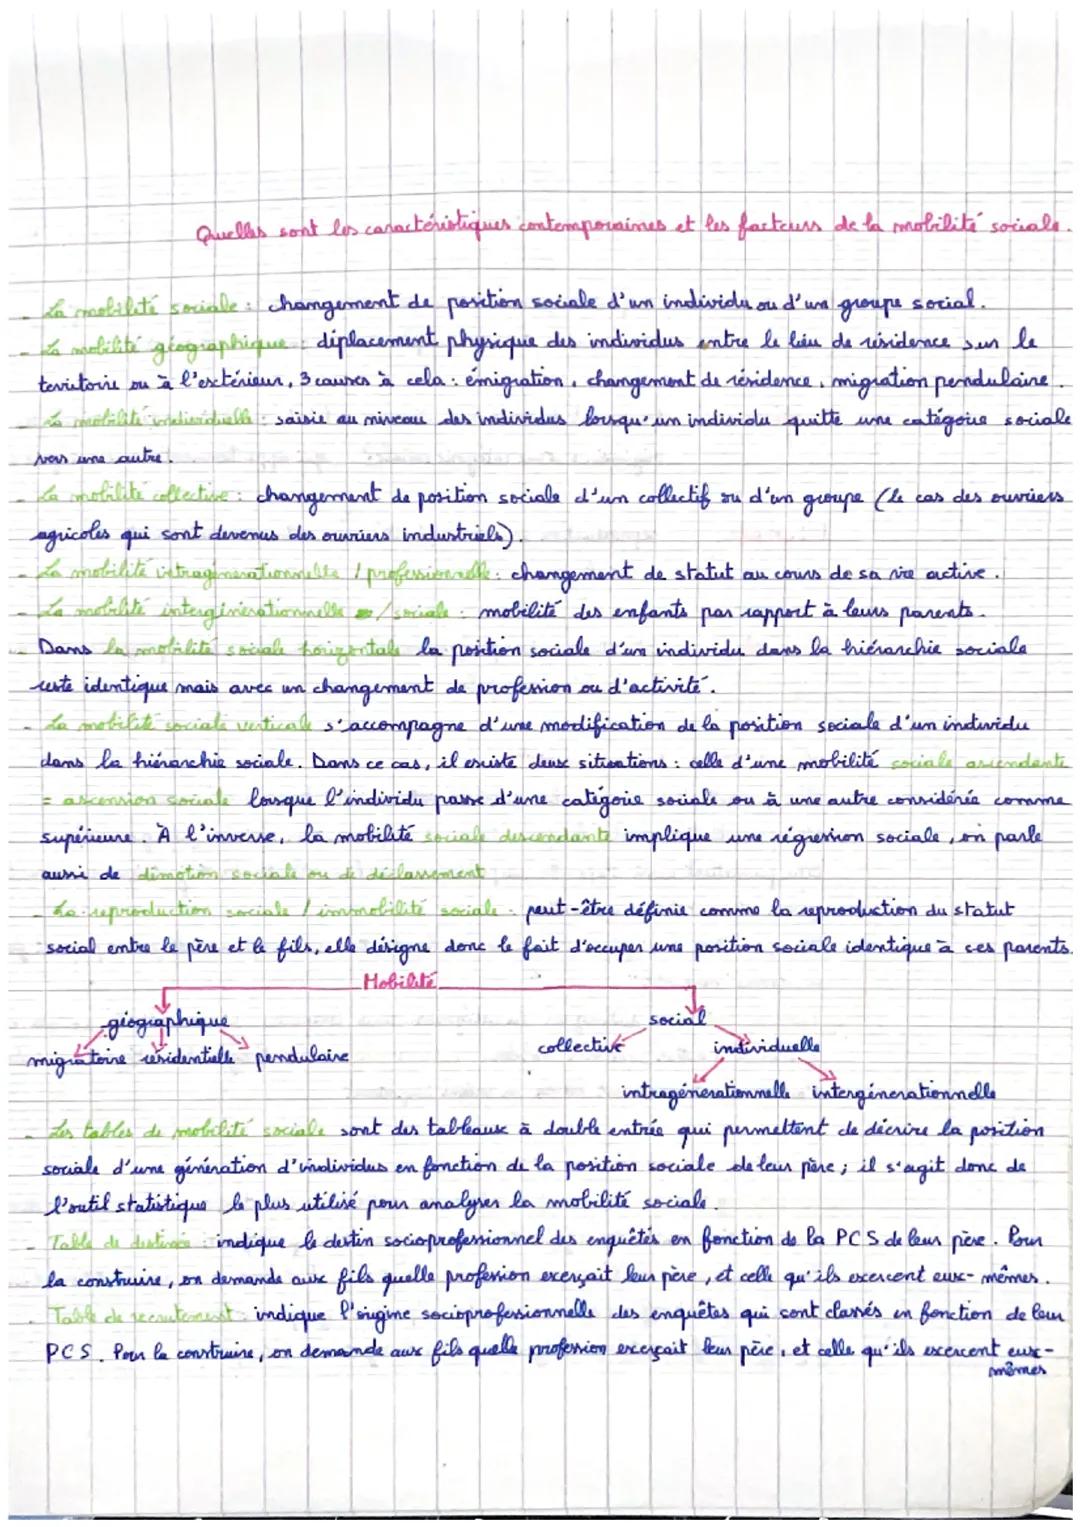 Quelles sont les caractéristiques contemporaines et les facteurs de la mobilité sociale.
- La mobilité sociale : changement de position sociale d'un individu ou d'un groupe social.
- La mobilité géographique : déplacement physique des individus entre le lieu de résidence sur le
territoire ou à l'extérieur, 3 causes à cela : émigration, changement de résidence, migration pendulaire.
- La mobilité individuelle : saisie au niveau des individus lorsqu'un individu quitte une catégorie sociale
vers une autre.
- La mobilité collective : changement de position sociale d'un collectif ou d'un groupe (le cas des ouvriers
agricoles qui sont devenus des ouvriers industriels).
- La mobilité intragénérationnelle / professionnelle : changement de statut au cours de sa vie active.
- La mobilité intergénérationnelle / sociale : mobilité des enfants par rapport à leurs parents.
- Dans la mobilité sociale horizontale la position sociale d'un individu dans la hiérarchie sociale
reste identique mais avec un changement de profession ou d'activité.
- La mobilité sociale verticale s'accompagne d'une modification de la position sociale d'un individu
dans la hiérarchie sociale. Dans ce cas, il existe deux situations : celle d'une mobilité sociale ascendante
= ascension sociale lorsque l'individu passe d'une catégorie sociale ou à une autre considérée comme
supérieure. À l'inverse, la mobilité sociale descendante implique une régression sociale, on parle
aussi de démotion sociale ou de déclassement
- La reproduction sociale / immobilité sociale : peut-être définie comme la reproduction du statut
social entre le père et le fils, elle désigne donc le fait d'occuper une position sociale identique à ses parents.
Mobilité
géographique social
migratoire résidentielle pendulaire collective individuelle
intragénérationnelle intergénérationnelle
- Les tables de mobilité sociale sont des tableaux à double entrée qui permettent de décrire la position
sociale d'une génération d'individus en fonction de la position sociale de leur père ; il s'agit donc de
l'outil statistique le plus utilisé pour analyser la mobilité sociale.
- Table de destinée : indique le destin socioprofessionnel des enquêtés en fonction de la PCS de leur père. Pour
la construire, on demande aux fils quelle profession exerçait leur père, et celle qu'ils exercent eux-mêmes.
- Table de recrutement : indique l'origine socioprofessionnelle des enquêtes qui sont classés en fonction de leur
PCS. Pour la construire, on demande aux fils quelle profession exerçait leur père, et celle qu'ils exercent eux-
mêmes